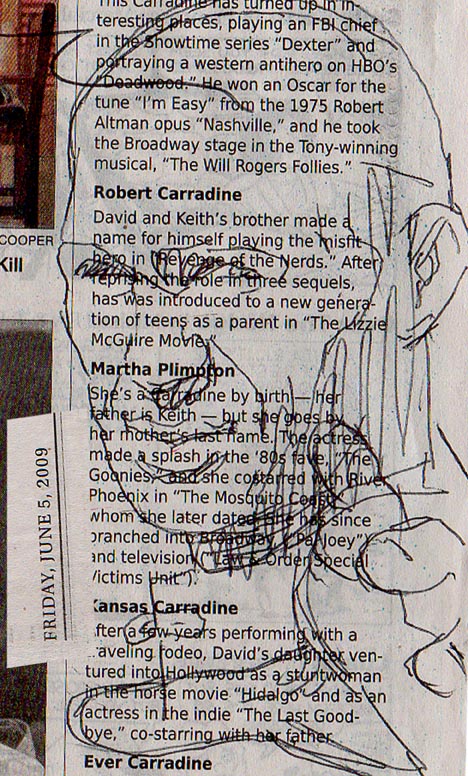 This Carradine has turned up in in-
teresting places, playing an FBI chief
in the Showtime series “Dexter” and
portraying a western antihero on HBO’s
“Deadwood.” He won an Oscar for the
tune “I’m Easy” from the 1975 Robert
Altman opus “Nashville,” and he took
the Broadway stage in the Tony-winning
musical, “The Will Rogers Follies.”
Robert Carradine
David and Keith’s brother made a
name for himself playing the misfit
hero in “Revenge of the Nerds.” After
reprising the role in three sequels,
has was introduced to a new genera-
tion of teens as a parent in “The Lizzie
McGuire Movie.”
Martha Plimpton
She’s a Carradine by birth — her
father is Keith — but she goes by
her mother’s last name. The actress
made a splash in the ’80s fave, “The
Goonies,” and she costarred with River
Phoenix in “The Mosquito Coast,”
whom she later dated. She has since
branched into Broadway (“Pal Joey”)
and television (“Law & Order Special
Victims Unit”).
Kansas Carradine
After a few years performing with a
traveling rodeo, David’s daughter ven-
tured into Hollywood as a stuntwoman
in the horse movie “Hidalgo” and as an
actress in the indie “The Last Good-
bye,” co-starring with her father
Ever Carradine
COOPER
Kill
FRIDAY, JUNE 5, 2009